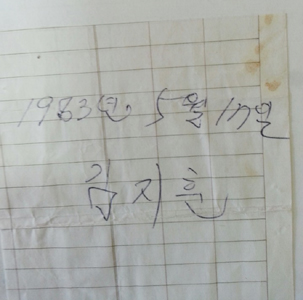 1983년 5월 17일
김지흔